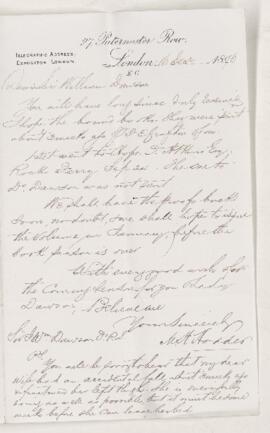 27, Paternoster Row,
TELEGRAPHIC ADDRESS:
EXPOSITOR LONDON.
London, 16 Dec 1890
E.C.
Dear Sir William Dawson
You will have long since duly received
I hope the bound books they were sent
about
went to Prof.
Rock Ferry The one to
Dr. Dawson was not sent
We shall have the proofs back
soon no doubt, we shall hope to issue
the volume in January, before the
book season is over
With every good wish for
the Coming Season for you & Lady
Dawson, Believe me
Yours Sincerely
M. H. Hodder
Sir J. Wm Dawson
PS
You will be sorry to hear that my dear
wife had an accidental fall about 3 weeks ago
& fractured her left thigh. She is mercifully
doing as well as possible, but it must be some
weeks before she can be